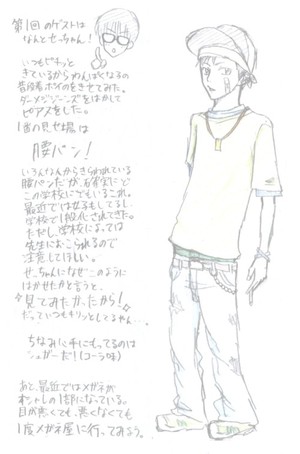 第1回のゲストは
なんとせっちゃん!
いつもピキッと
きているからわんぱくなるの
普段着ポイのをきせてみた。
ダメージジーンズをはかして
ピアスをした。
1番の見せ場は
腰パン!
いろんな人からきらわれている
腰パンだが、
この学校にでもいるこれ。
最近では女子もしてるし、
学校で1般化されてきた。
ただし、学校によっては
先生におこられるので
注意してほしい。
せっちゃんになぜこのように
はかせたかと言うと、
見てみたかったから!
だっていつもキリッとしてるやん…
ちなみに手にもってるのは
シュガーだ!(コーラ味)
あと、最近ではメガネが
オシャレの1部になっている。
目が悪くても、悪くなくても
1度メガネ屋に行ってみよう。